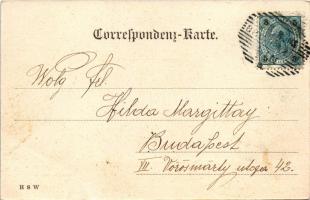 Correspondenz-Karte.
Hilda Margittay
Budapest
VII. Vörösmarty utcza 42.
H S W